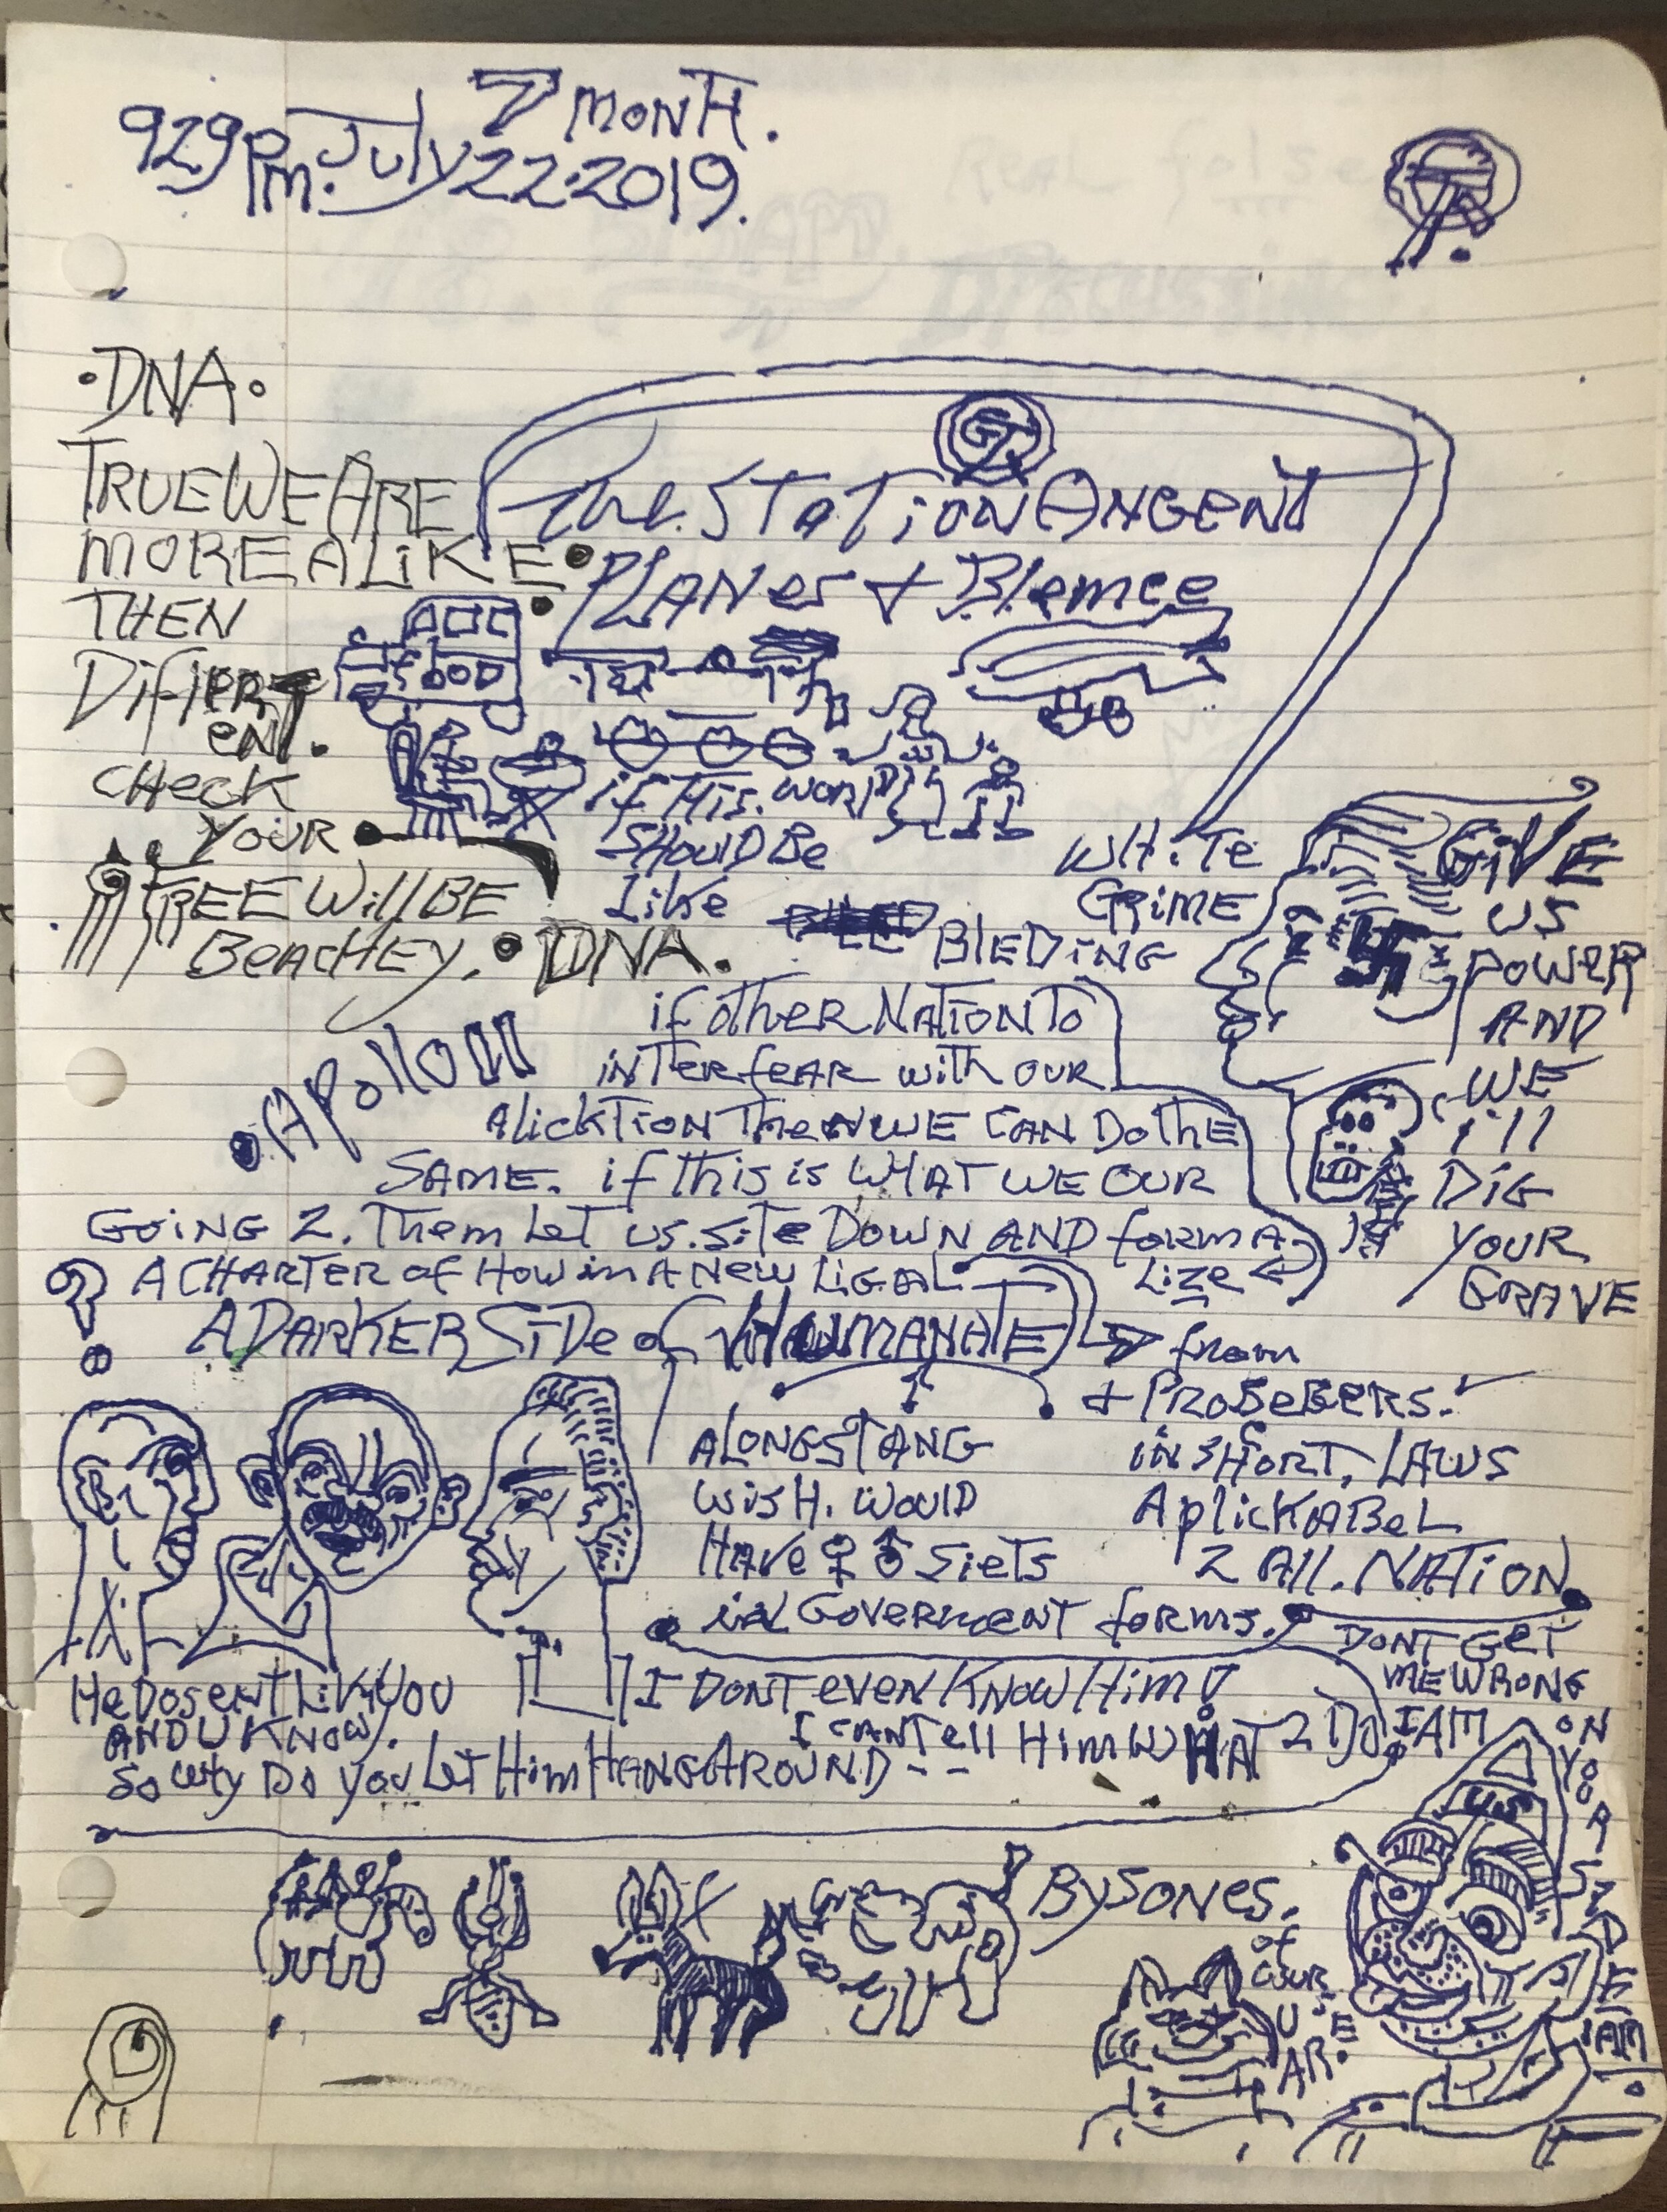 7 MONTH.
929 PM. July 22.2019.
•DNA•
TRUE WE ARE
MORE ALIKE•
THEN
DifiERT
ENT.
CHeCK
YOUR
TREE Will BE
BEACHEY. • DNA.
The STATION ANGENT
PLANES + Blemce
fOOD
if THis. WORlD
SHOUlD Be
Like
BlEDiNG
WHiTe
GRiME
GiVE
US
POWER
AND
WE
i'll
DiG
YOUR
GRAVE
•APOllO 11
if OTHER NATION TO
iNTERfEAR with OUR
AlicKTiON THeN WE CAN DO THE
SAME. if this is WHAT WE OUR
GOiNG 2. Them LeT US. SiTe DOWN AND form A
A CHARTER of HOW in A New LiGAL
Lize
A DARKER SiDe of HUMANATE
from
+ PROBEBERS.
ALONGSTANG
WisH. WOUlD
HAVe ♀ ♂ SieTs
in GOVERMENT forms.
iN SHORT. LAWS
AplicKABeL
2 All. NATiON
DONT GeT
Me WRONG
I AM
ON
YOUR
SIDE
I AM
He DOSENT LiKe YOU
AND U KNOW.
SO WHY DO YOU LeT Him HANG AROUND--
I DONT eveN KNOW Him!
I CANT Tell Him WHAT 2 DO.
US
BYSONES.
of
OUR
USE
AR.